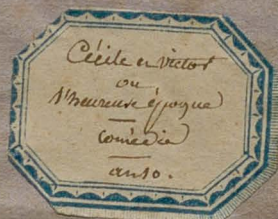 Cécile et Victor
ou
l'heureuse époque
comédie
an 10.